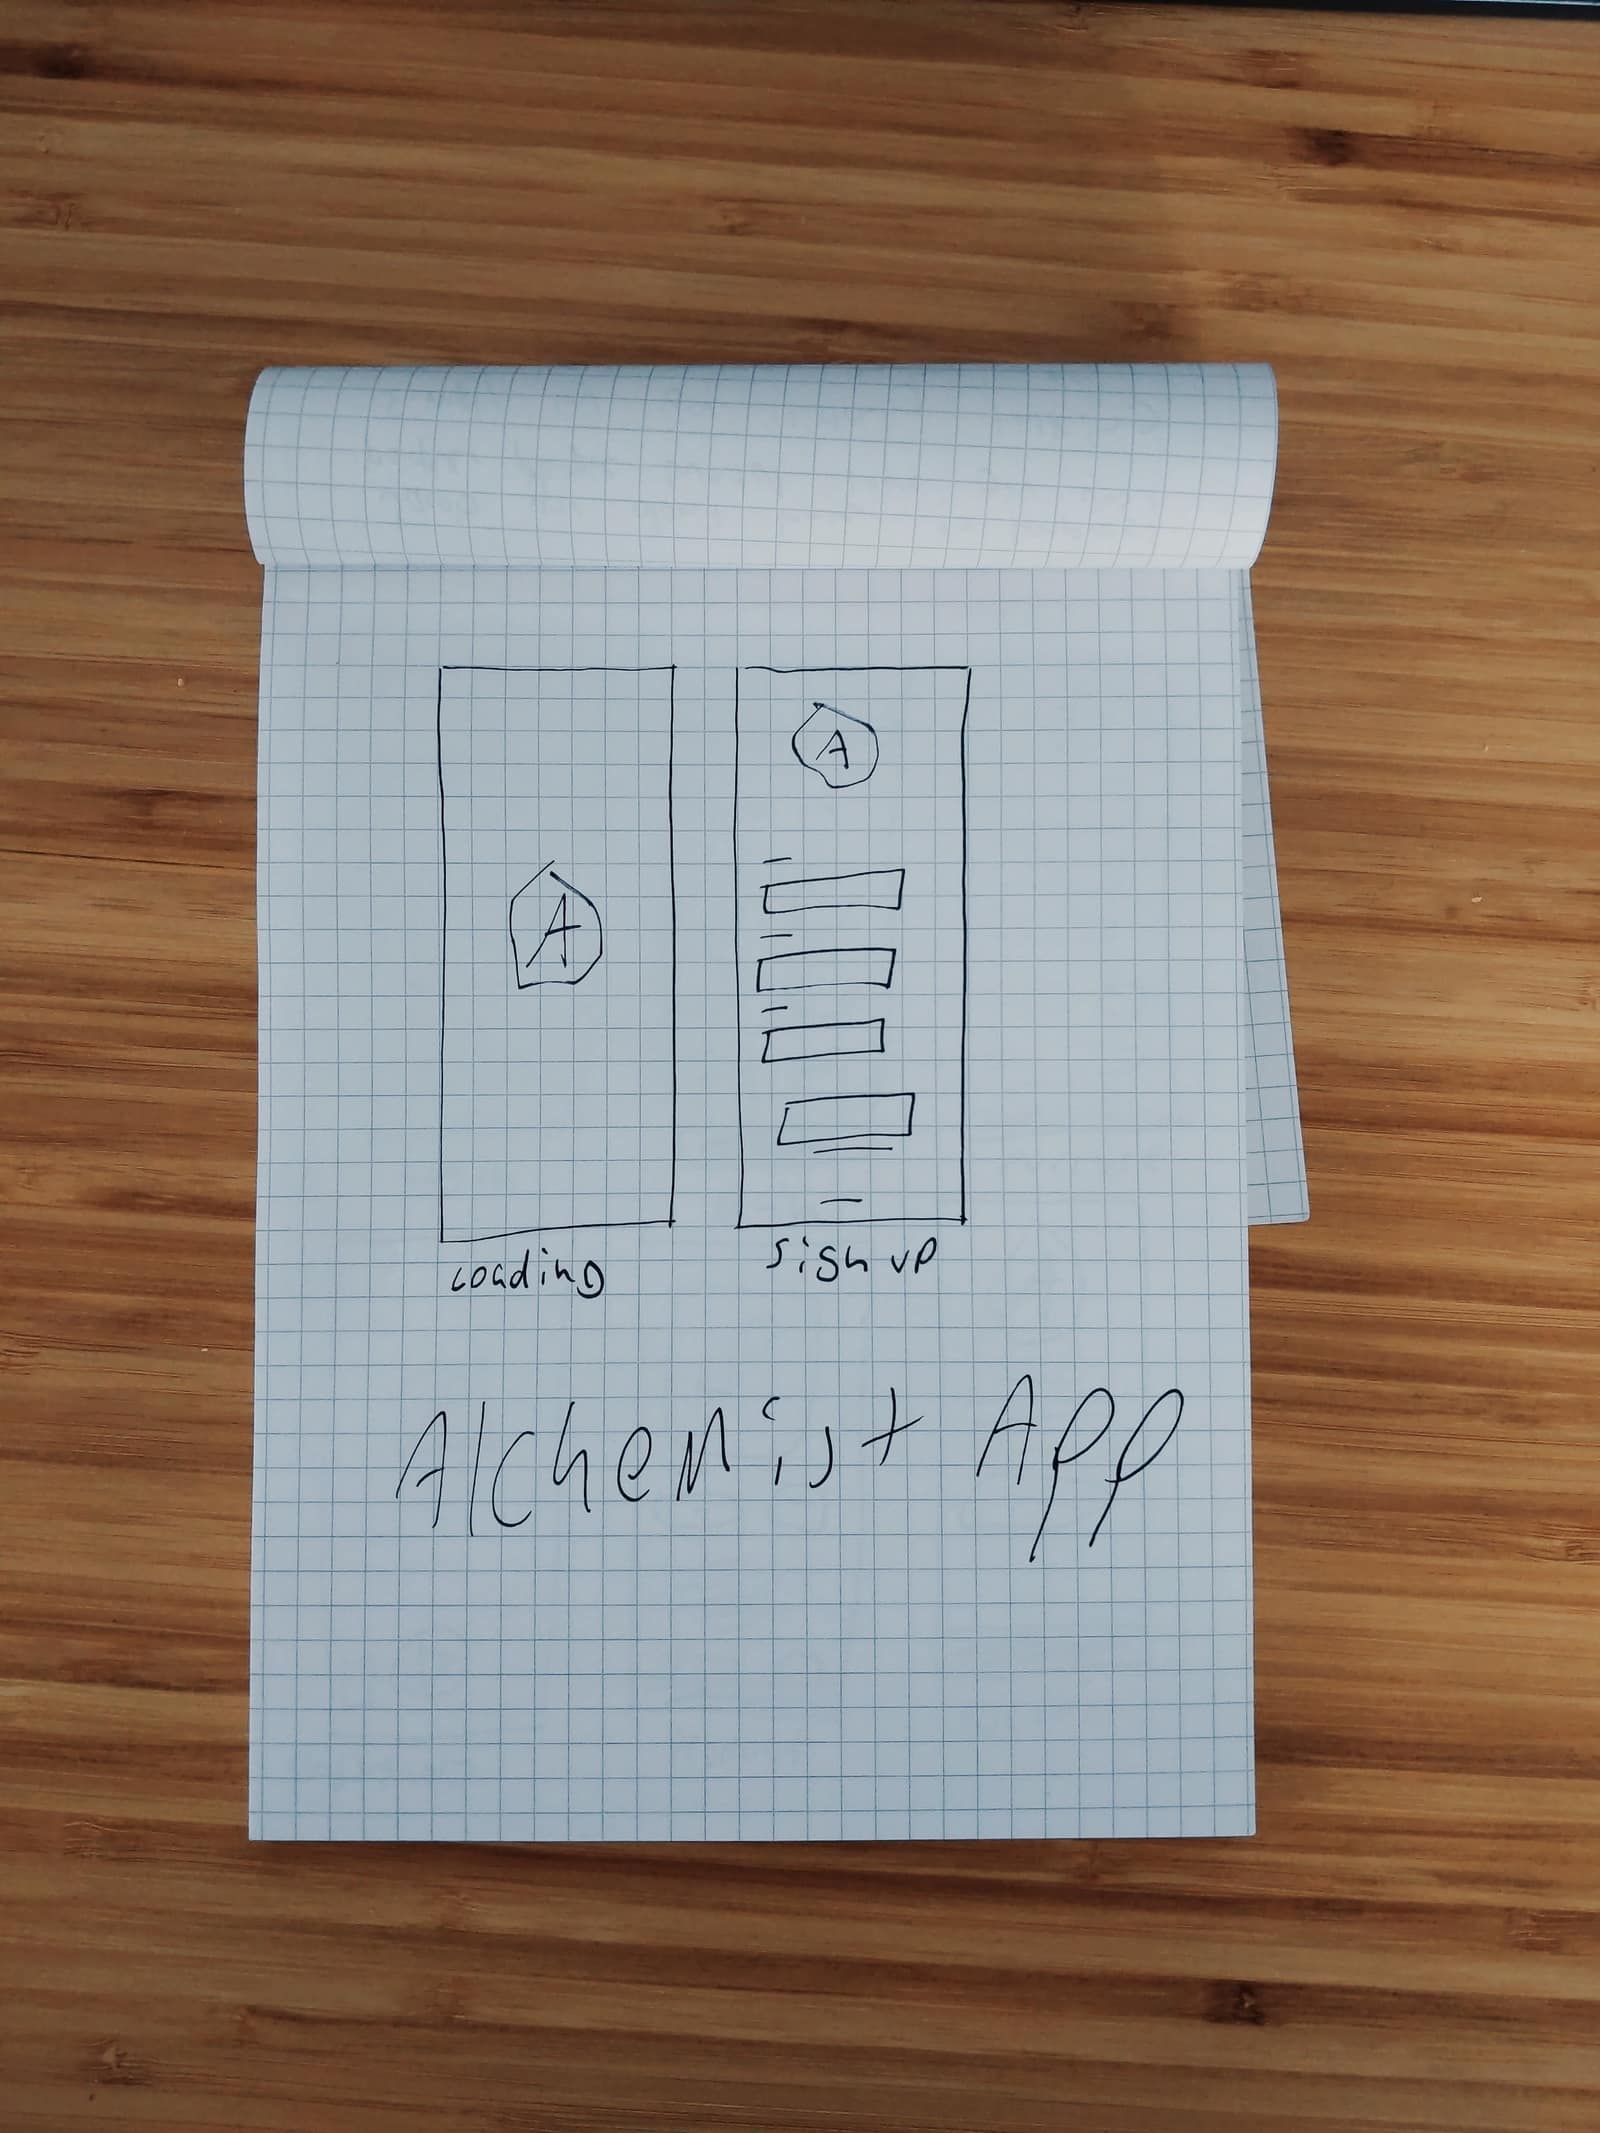 A
A
Loading
sign up
Alchemist App